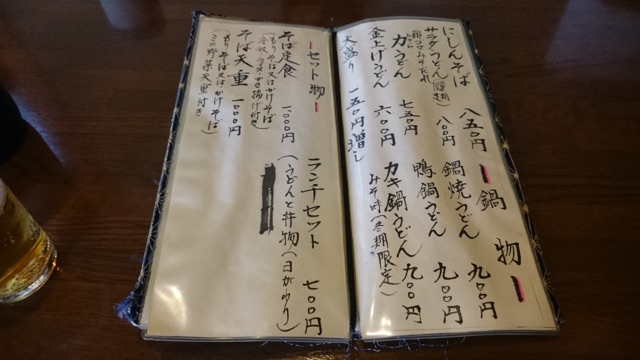 にしんそば 八五〇円
サラダうどん(夏期) 八〇〇円
力うどん 七五〇円
釜上げうどん 六〇〇円
大盛り 一五〇円増し
鍋物
鍋焼うどん 九〇〇円
鴨鍋うどん 九〇〇円
カキ鍋うどん 九〇〇円
みそ味(冬期限定)
セット物
そば定食 一、〇〇〇円
(もりそば又はかけそば
冷奴・かき揚げ付き)
そば天重 一、〇〇〇円
(もりそば又はかけそば
ミニ野菜天重付き)
ランチセット 七〇〇円
(うどんと丼物(日がわり)